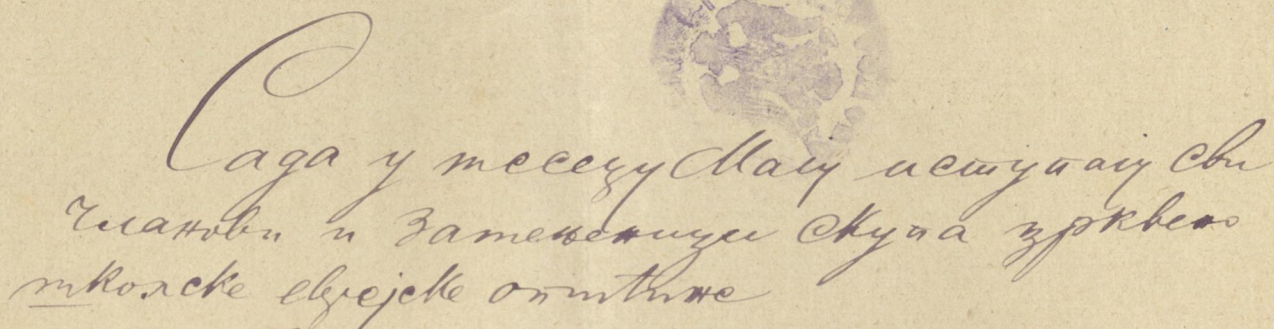 Сада у месецу Мају иступају сви
чланови и заменици скупа црквено
школске еврејске општине